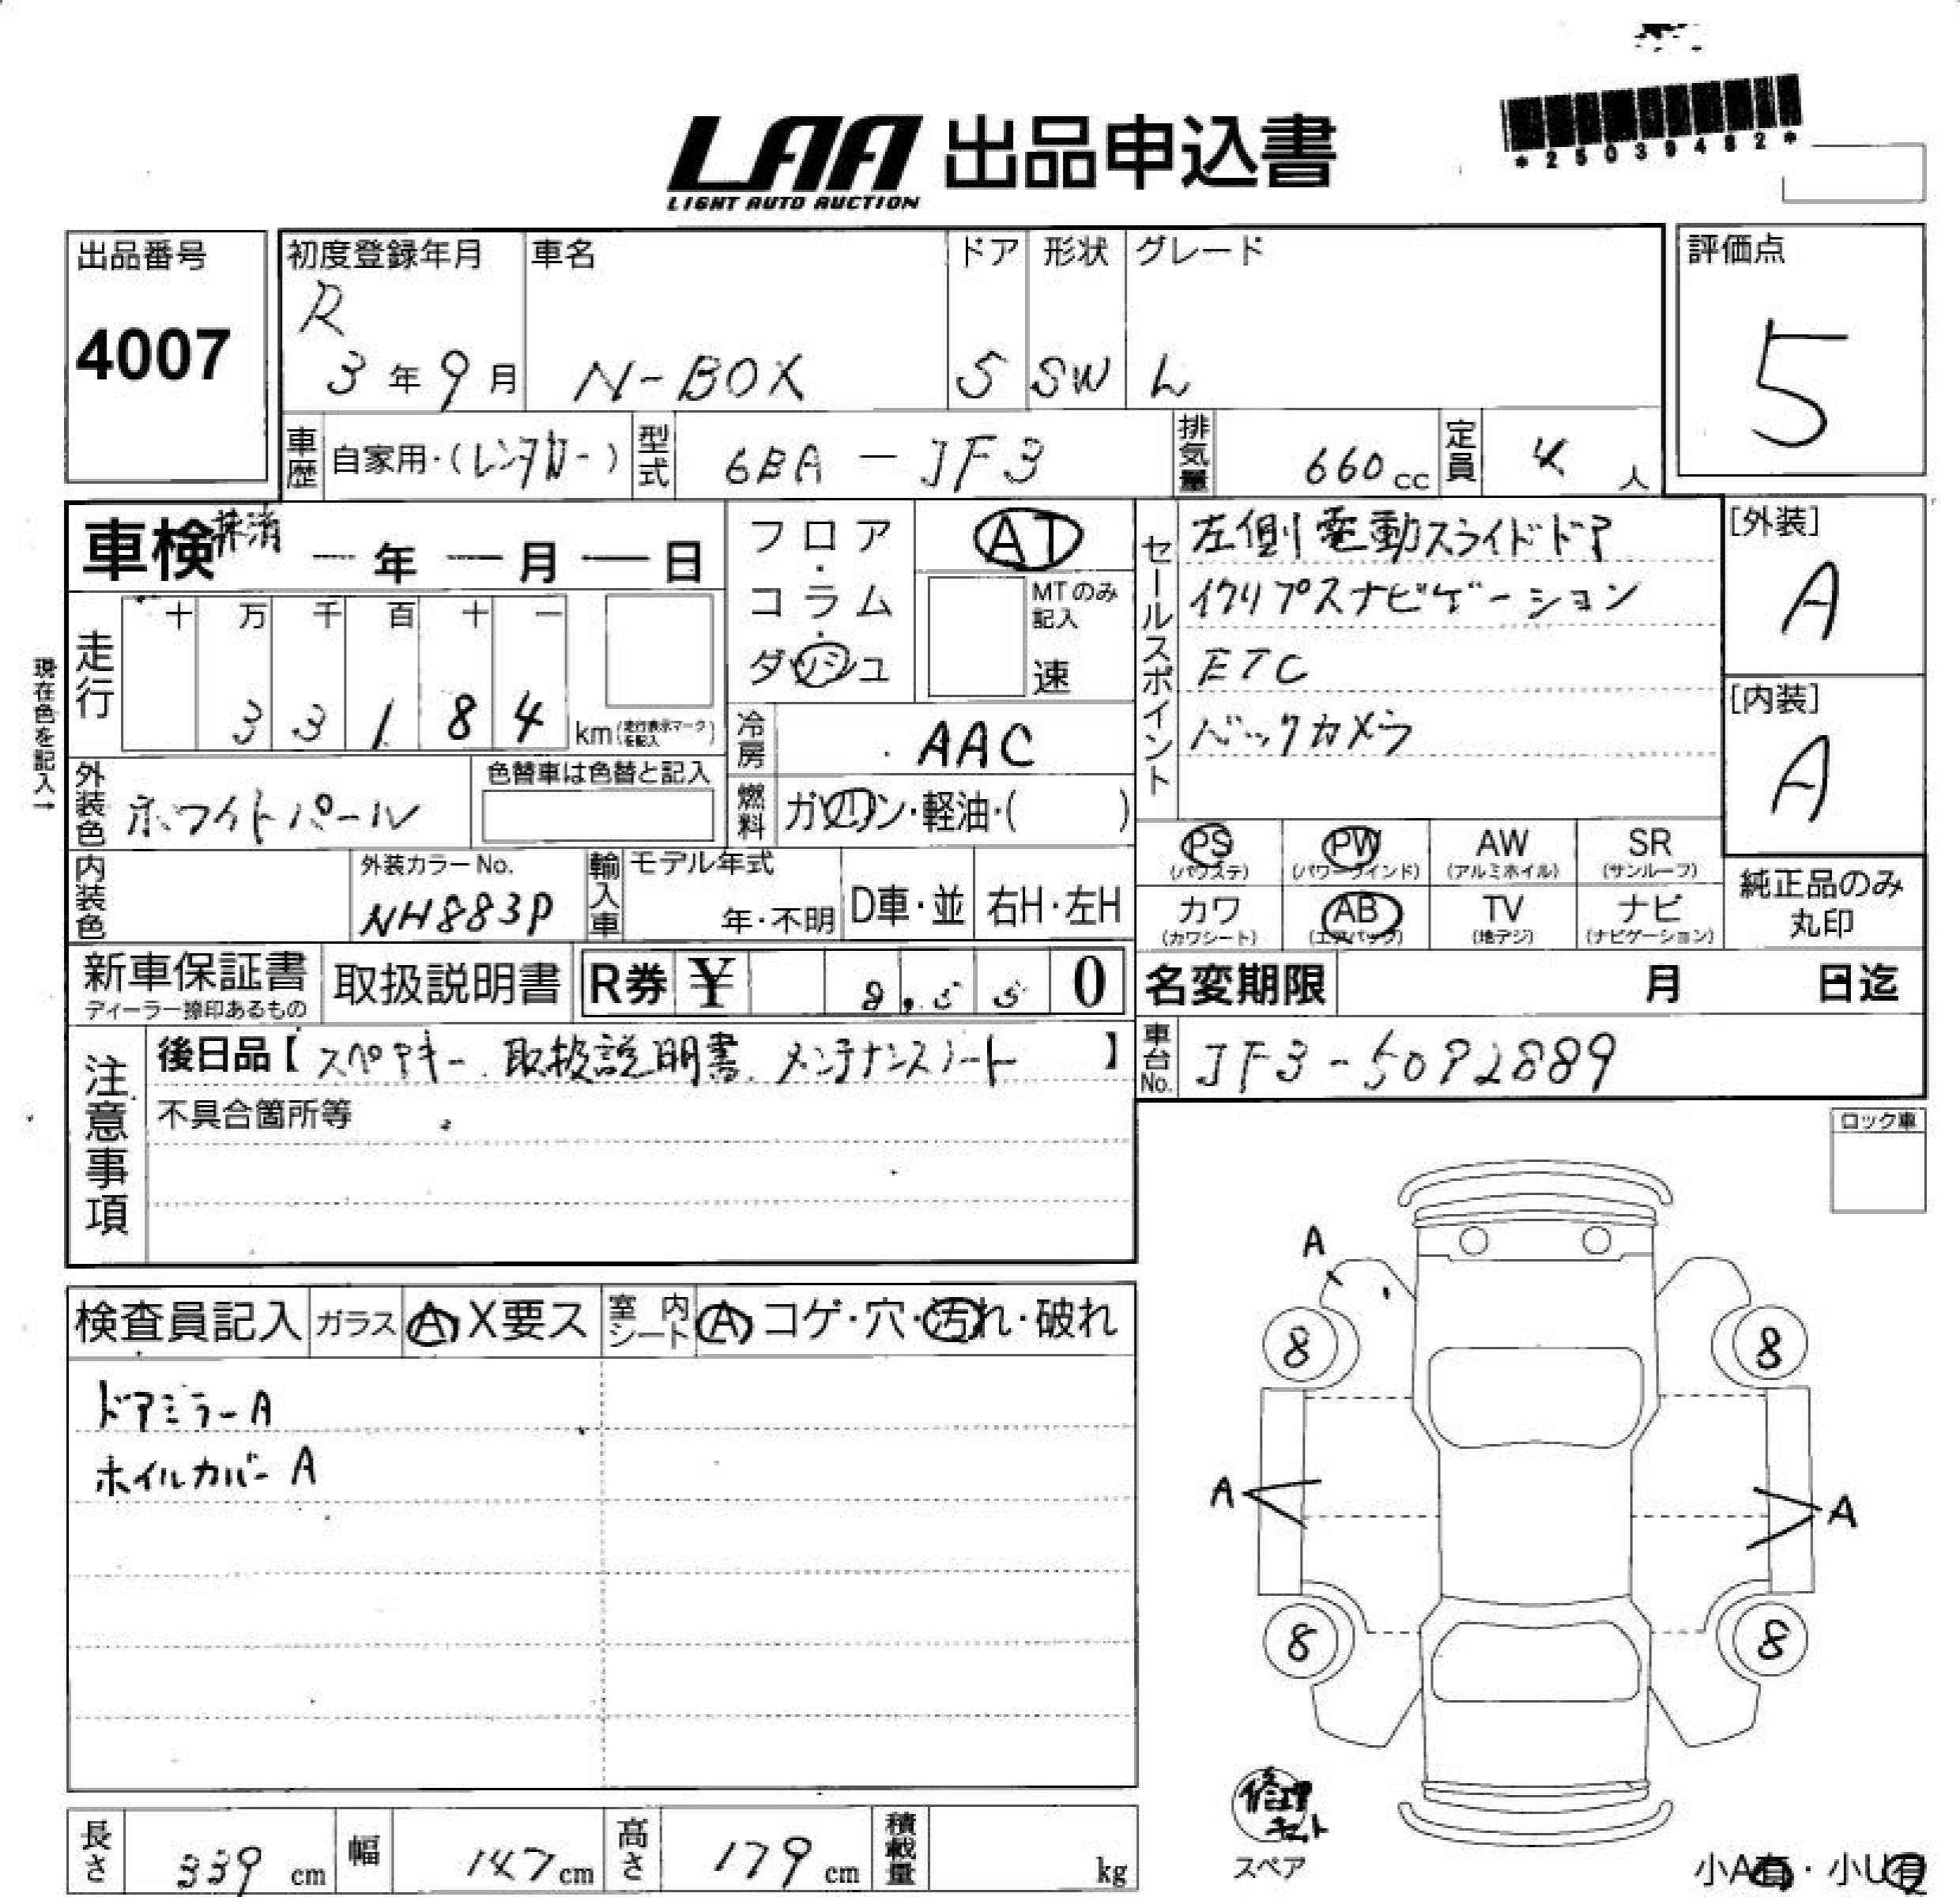 *25039482*
LAA 出品申込書
LIGHT AUTO AUCTION
出品番号
4007
初度登録年月
R
3年9月
車名
N-BOX
ドア
5
形状
SW
グレード
L
評価点
5
車歴 自家用・(レンタカー)
型式 6BA-JF3
排気量 660cc
定員 4人
車検 抹消 ー年ー月ー日
現在色を記入→
走行
十 万 千 百 十 一
3 3 1 8 4
km(走行表示マークを記入)
フロア・コラム・ダッシュ
AT
MTのみ記入
速
冷房 AAC
燃料 ガソリン・軽油・( )
セールスポイント
左側電動スライドドア
イクリプスナビゲーション
ETC
バックカメラ
[外装]
A
[内装]
A
外装色 ホワイトパール
色替車は色替と記入
内装色
外装カラーNo.
NH883P
輸入車
モデル年式
年・不明
D車・並
右H・左H
PS (パワステ)
PW (パワーウインド)
AW (アルミホイル)
SR (サンルーフ)
カワ (カワシート)
AB (エアバック)
TV (地デジ)
ナビ (ナビゲーション)
純正品のみ
丸印
新車保証書
ディーラー捺印あるもの
取扱説明書
R券 ¥ 8,550
名変期限 月 日迄
注意事項
後日品【スペアキー、取扱説明書、メンテナンスノート】
不具合箇所等
車台No. JF3-5092889
ロック車
検査員記入
ガラス A X要ス
室内シート A コゲ・穴・汚れ・破れ
ドアミラーA
ホイルカバーA
A
8
8
A
A
8
8
修理キット
スペア
小A有・小U有
長さ 339cm
幅 147cm
高さ 179cm
積載量 kg